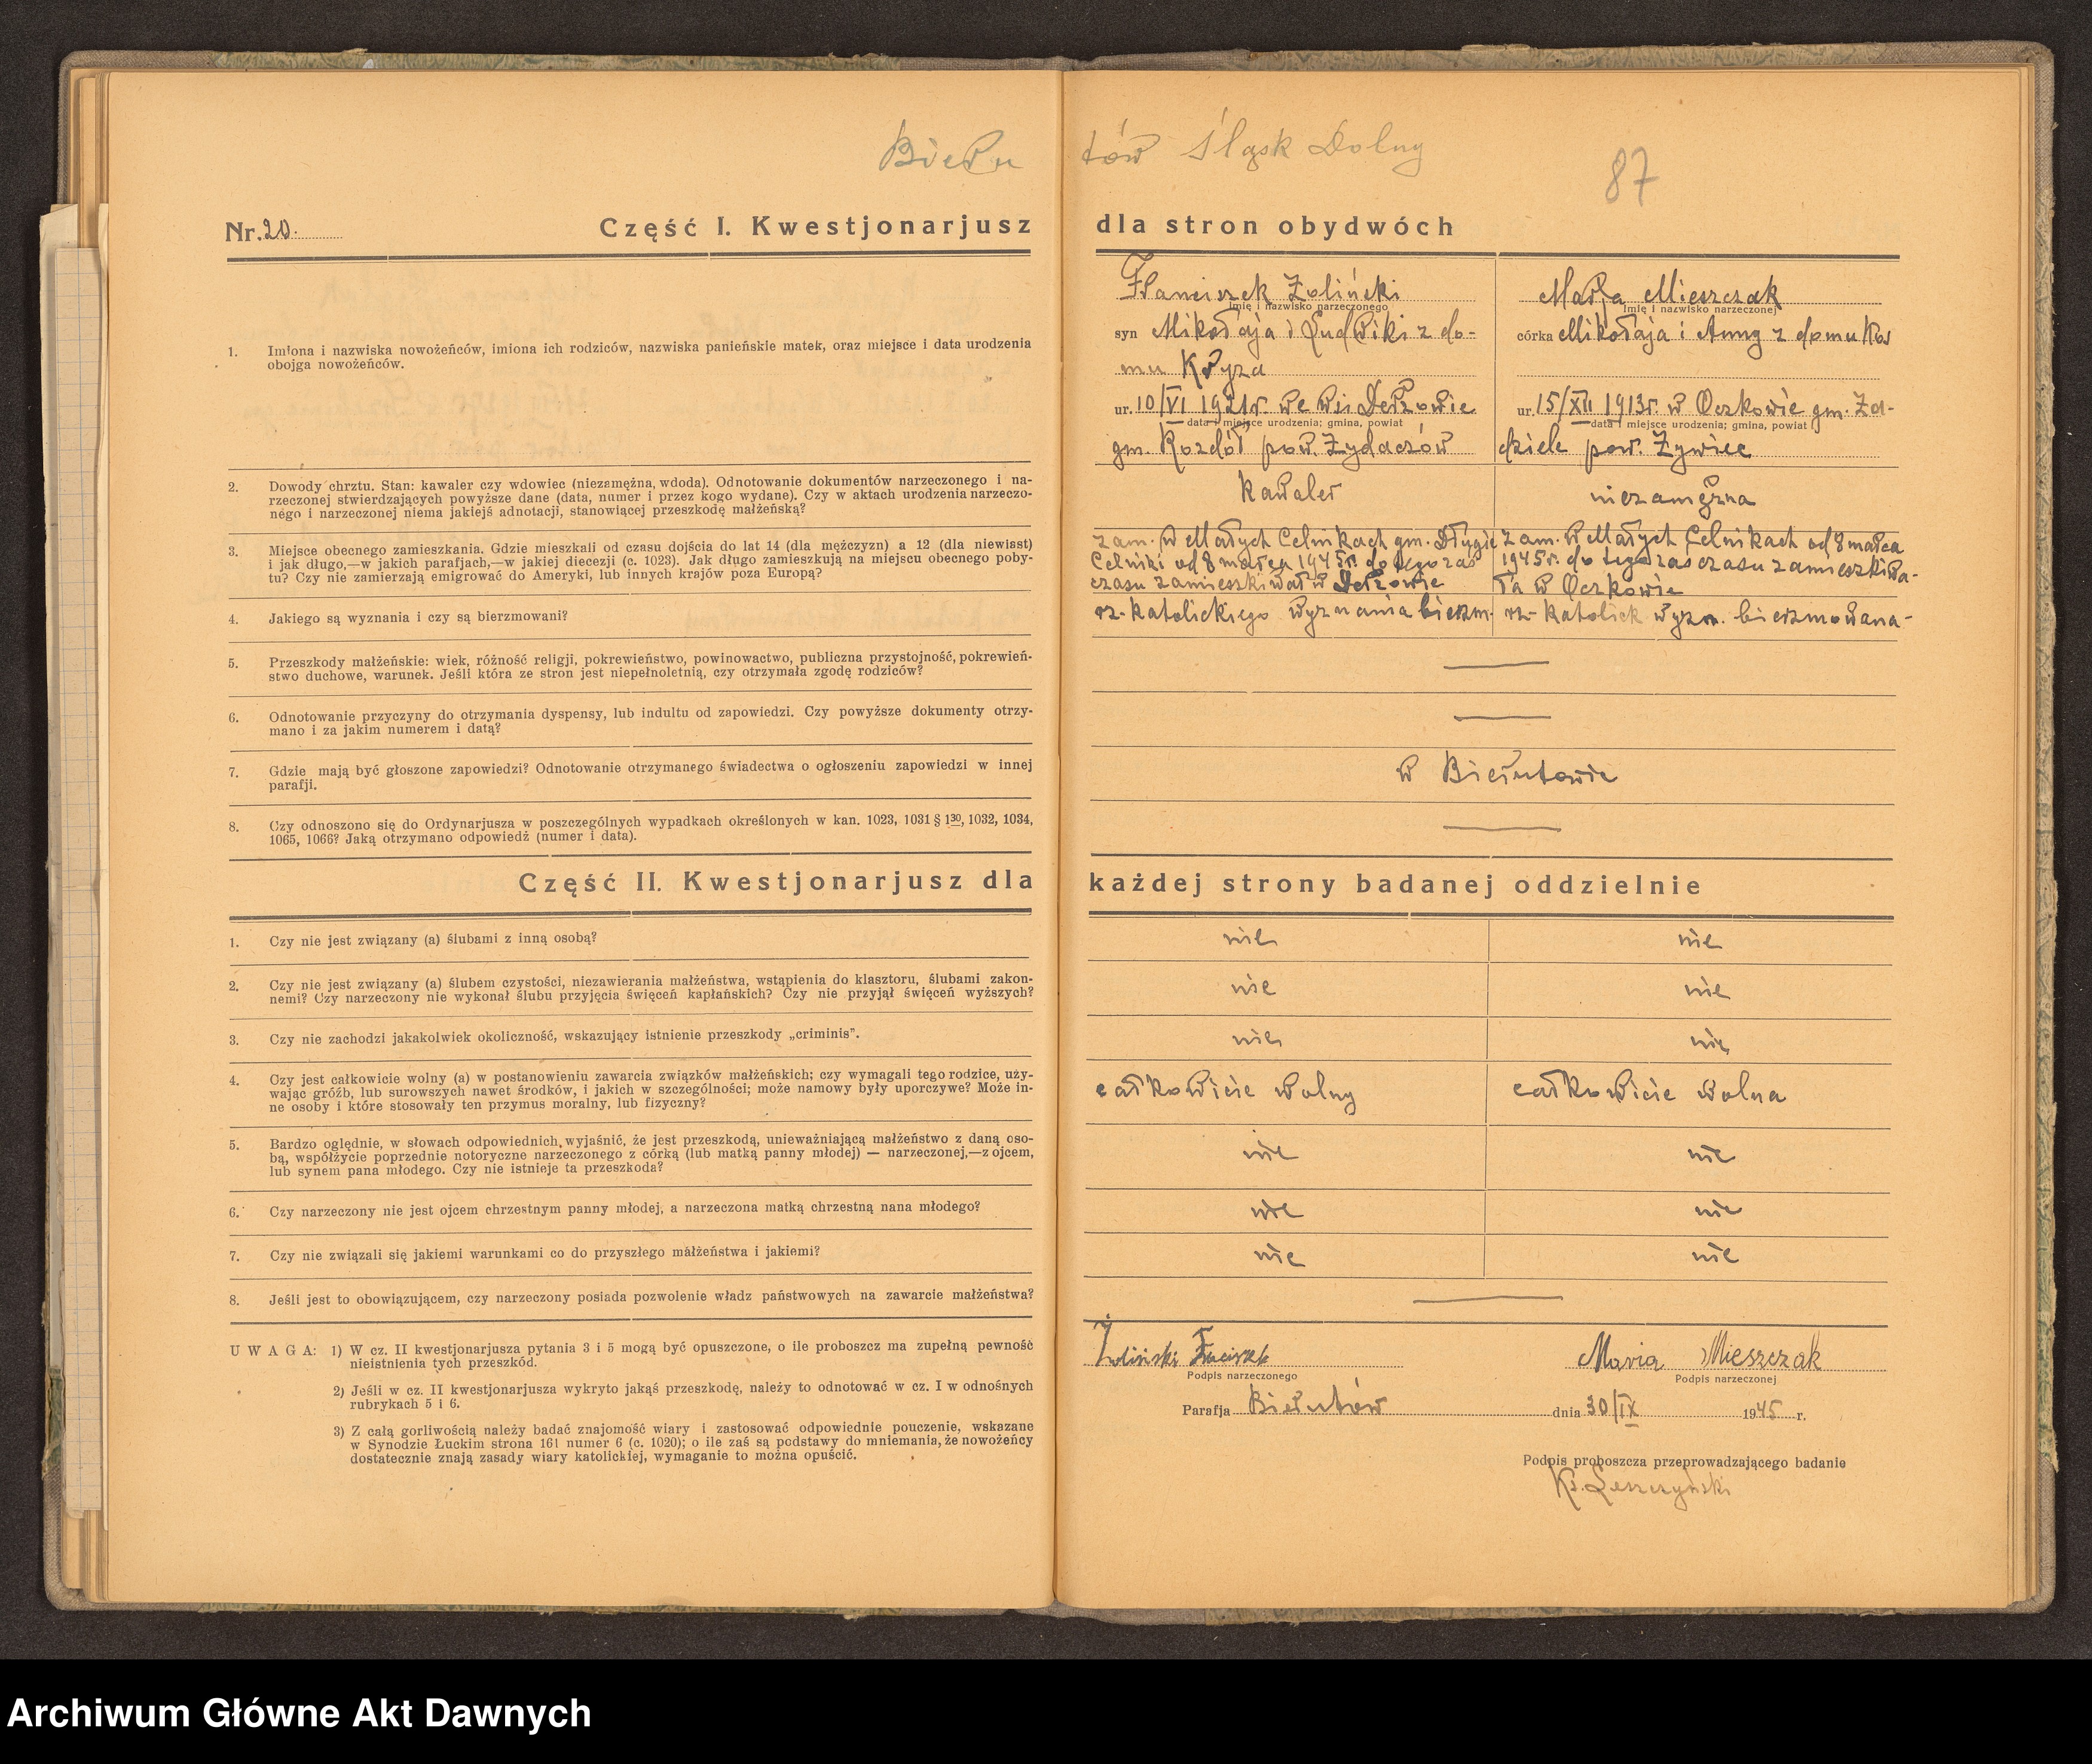 Bieru
tów Śląsk Dolny
87
Nr. 20.
Część I. Kwestjonarjusz
dla stron obydwóch
1. Imiona i nazwiska nowożeńców, imiona ich rodziców, nazwiska panieńskie matek, oraz miejsce i data urodzenia
obojga nowożeńców.
Franciszek Żoliński
imię i nazwisko narzeczonego
syn Mikołaja i Ludwiki z do-
mu Kryza
ur. 10/VI 1921r. we wsi Derżowie
data i miejsce urodzenia; gmina, powiat
gm. Rozdół pow. Żydaczów
Marja Mieszczak
imię i nazwisko narzeczonej
córka Mikołaja i Anny z domu Kos
ur. 15/XII 1913r. w Oczkowie gm. Za-
data i miejsce urodzenia; gmina, powiat
dziele pow. Żywiec
2. Dowody chrztu. Stan: kawaler czy wdowiec (niezamężna, wdoda). Odnotowanie dokumentów narzeczonego i na-
rzeczonej stwierdzających powyższe dane (data, numer i przez kogo wydane). Czy w aktach urodzenia narzeczo-
nego i narzeczonej niema jakiejś adnotacji, stanowiącej przeszkodę małżeńską?
Kawaler
niezamężna
3. Miejsce obecnego zamieszkania. Gdzie mieszkali od czasu dojścia do lat 14 (dla mężczyzn) a 12 (dla niewisst)
i jak długo,—w jakich parafjach,—w jakiej diecezji (c. 1023). Jak długo zamieszkują na miejscu obecnego poby-
tu? Czy nie zamierzają emigrować do Ameryki, lub innych krajów poza Europą?
zam. w Małych Celnikach gm. Długie
Celniki od 8 marca 1945r. do tego zaś
czasu zamieszkiwał w Derżowie
zam. w Małych Celnikach od 8 marca
1945r. do tego zaś czasu zamieszkiwa-
ła w Oczkowie
4. Jakiego są wyznania i czy są bierzmowani?
rz-katolickiego wyznania bierzm.
rz-katolick wyzn. bierzmowana-
5. Przeszkody małżeńskie: wiek, różność religji, pokrewieństwo, powinowactwo, publiczna przystojność, pokrewień-
stwo duchowe, warunek. Jeśli która ze stron jest niepełnoletnią, czy otrzymała zgodę rodziców?
6. Odnotowanie przyczyny do otrzymania dyspensy, lub indultu od zapowiedzi. Czy powyższe dokumenty otrzy-
mano i za jakim numerem i datą?
7. Gdzie mają być głoszone zapowiedzi? Odnotowanie otrzymanego świadectwa o ogłoszeniu zapowiedzi w innej
parafji.
w Bierutowie
8. Czy odnoszono się do Ordynarjusza w poszczególnych wypadkach określonych w kan. 1023, 1031 § 130, 1032, 1034,
1065, 1066? Jaką otrzymano odpowiedź (numer i data).
Część II. Kwestjonarjusz dla
każdej strony badanej oddzielnie
1. Czy nie jest związany (a) ślubami z inną osobą?
nie
nie
2. Czy nie jest związany (a) ślubem czystości, niezawierania małżeństwa, wstąpienia do klasztoru, ślubami zakon-
nemi? Czy narzeczony nie wykonał ślubu przyjęcia święceń kapłańskich? Czy nie przyjął święceń wyższych?
nie
nie
3. Czy nie zachodzi jakakolwiek okoliczność, wskazujący istnienie przeszkody „criminis".
nie
nie
4. Czy jest całkowicie wolny (a) w postanowieniu zawarcia związków małżeńskich; czy wymagali tego rodzice, uży-
wając gróźb, lub surowszych nawet środków, i jakich w szczególności; może namowy były uporczywe? Może in-
ne osoby i które stosowały ten przymus moralny, lub fizyczny?
całkowicie wolny
całkowicie wolna
5. Bardzo oględnie, w słowach odpowiednich, wyjaśnić, że jest przeszkodą, unieważniającą małżeństwo z daną oso-
bą, współżycie poprzednie notoryczne narzeczonego z córką (lub matką panny młodej) — narzeczonej,—z ojcem,
lub synem pana młodego. Czy nie istnieje ta przeszkoda?
nie
nie
6. Czy narzeczony nie jest ojcem chrzestnym panny młodej, a narzeczona matką chrzestną nana młodego?
nie
nie
7. Czy nie związali się jakiemi warunkami co do przyszłego małżeństwa i jakiemi?
nie
nie
8. Jeśli jest to obowiązującem, czy narzeczony posiada pozwolenie władz państwowych na zawarcie małżeństwa?
UWAGA: 1) W cz. II kwestjonarjusza pytania 3 i 5 mogą być opuszczone, o ile proboszcz ma zupełną pewność
nieistnienia tych przeszkód.
2) Jeśli w cz. II kwestjonarjusza wykryto jakąś przeszkodę, należy to odnotować w cz. I w odnośnych
rubrykach 5 i 6.
3) Z całą gorliwością należy badać znajomość wiary i zastosować odpowiednie pouczenie, wskazane
w Synodzie Łuckim strona 161 numer 6 (c. 1020); o ile zaś są podstawy do mniemania, że nowożeńcy
dostatecznie znają zasady wiary katolickiej, wymaganie to można opuścić.
Żoliński
Podpis narzeczonego
Maria Mieszczak
Podpis narzeczonej
Parafja Bierutów dnia 30/IX 1945 r.
Podpis proboszcza przeprowadzającego badanie
Ks. Leszczyński
Archiwum Główne Akt Dawnych